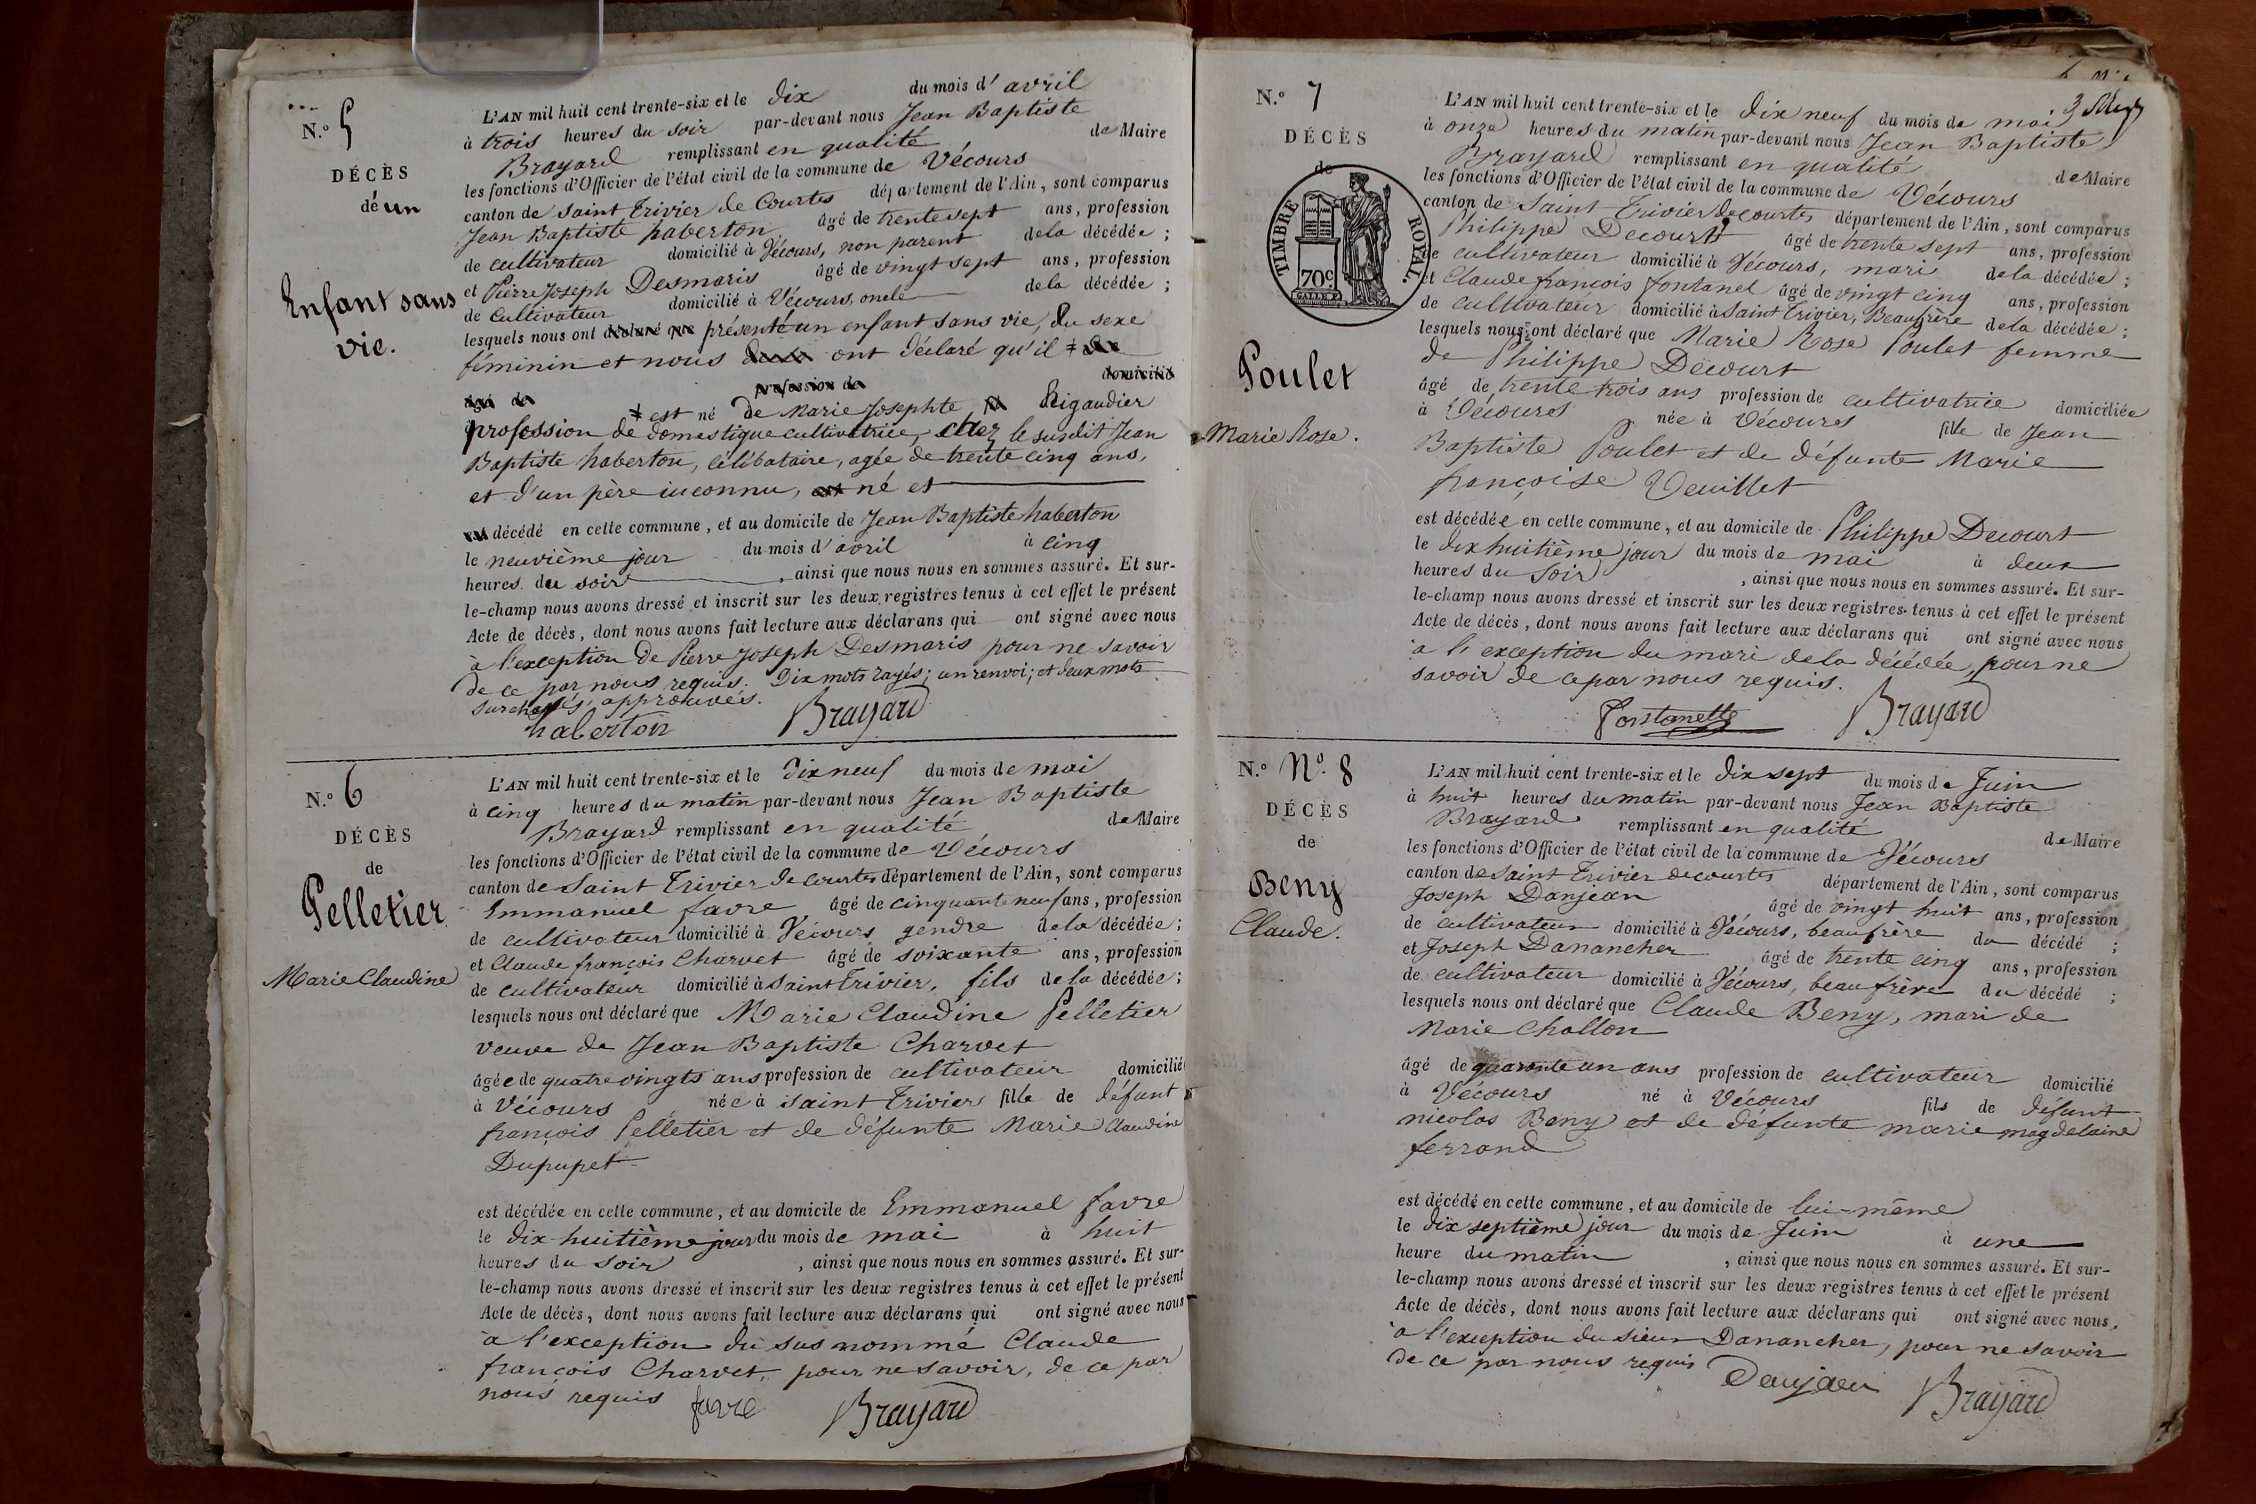 N.° 5
DÉCÈS
de un
Enfant sans
vie.
L'AN mil huit cent trente-six et le dix du mois d'avril
à trois heures du soir par-devant nous Jean Baptiste
Brayard remplissant en qualité de Maire
les fonctions d'Officier de l'état civil de la commune de Vécours
canton de Saint Trivier de Courtes département de l'Ain, sont comparus
Jean Baptiste haberton âgé de trente sept ans, profession
de cultivateur domicilié à Vécours, non parent de la décédée;
et Pierre Joseph Desmaris âgé de vingt sept ans, profession
de cultivateur domicilié à Vécours, oncle de la décédée;
lesquels nous ont déclaré que présenté un enfant sans vie, du sexe
féminin et nous ont déclaré qu'il
profession de domicilié
âgé de est né de Marie Josephte Rigaudier
profession de domestique cultivatrice, chez le susdit Jean
Baptiste haberton, célibataire, agée de trente cinq ans,
et d'un père inconnu, né et
décédé en cette commune, et au domicile de Jean Baptiste haberton
le neuvième jour du mois d'avril à cinq
heures du soir, ainsi que nous nous en sommes assuré. Et sur-
le-champ nous avons dressé et inscrit sur les deux registres tenus à cet effet le présent
Acte de décès, dont nous avons fait lecture aux déclarans qui ont signé avec nous
à l'exception de Pierre Joseph Desmaris pour ne savoir
de ce par nous requis. Dix mots rayés; un renvoi; et deux mots
surchargés approuvés.
haberton Brayard
N.° 6
DÉCÈS
de
Pelletier
Marie Claudine
L'AN mil huit cent trente-six et le dix neuf du mois de mai
à cinq heures du matin par-devant nous Jean Baptiste
Brayard remplissant en qualité de Maire
les fonctions d'Officier de l'état civil de la commune de Vécours
canton de Saint Trivier de Courtes département de l'Ain, sont comparus
Emmanuel favre âgé de cinquante neuf ans, profession
de cultivateur domicilié à Vécours gendre de la décédée;
et Claude françois Charvet âgé de soixante ans, profession
de cultivateur domicilié à Saint Trivier, fils de la décédée;
lesquels nous ont déclaré que Marie Claudine Pelletier
veuve de Jean Baptiste Charvet
âgée de quatre vingts ans profession de cultivateur domicilié
à Vécours née à Saint Trivier fille de défunt
françois Pelletier et de défunte Marie Claudine
Dupupet
est décédée en cette commune, et au domicile de Emmanuel favre
le dix-huitième jour du mois de mai à huit
heures du soir, ainsi que nous nous en sommes assuré. Et sur-
le-champ nous avons dressé et inscrit sur les deux registres tenus à cet effet le présent
Acte de décès, dont nous avons fait lecture aux déclarans qui ont signé avec nous
à l'exception du sus nommé Claude
françois Charvet, pour ne savoir, de ce par
nous requis favre Brayard
N.° 7
DÉCÈS
de
TIMBRE ROYAL.
70c.
Poulet
Marie Rose.
L'AN mil huit cent trente-six et le dix neuf du mois de mai
à onze heures du matin par-devant nous Jean Baptiste
Brayard remplissant en qualité de Maire
les fonctions d'Officier de l'état civil de la commune de Vécours
canton de Saint Trivier de courtes département de l'Ain, sont comparus
Philippe Decourt âgé de trente sept ans, profession
de cultivateur domicilié à Vécours, mari de la décédée;
et Claude françois fontanel âgé de vingt cinq ans, profession
de cultivateur domicilié à Saint Trivier, Beaufrère de la décédée;
lesquels nous ont déclaré que Marie Rose Poulet femme
de Philippe Decourt
âgé de trente trois ans profession de cultivatrice domiciliée
à Vécours née à Vécours fille de Jean
Baptiste Poulet et de défunte Marie
françoise Veuillet
est décédée en cette commune, et au domicile de Philippe Decourt
le dix huitième jour du mois de mai à deux
heures du Soir, ainsi que nous nous en sommes assuré. Et sur-
le-champ nous avons dressé et inscrit sur les deux registres tenus à cet effet le présent
Acte de décès, dont nous avons fait lecture aux déclarans qui ont signé avec nous
a l'exception du mari de la décédée, pour ne
savoir de ce par nous requis.
fonstanelle Brayard
N.° N.° 8
DÉCÈS
de
Beny
Claude.
L'AN mil huit cent trente-six et le dix sept du mois de Juin
à huit heures du matin par-devant nous Jean Baptiste
Brayard remplissant en qualité de Maire
les fonctions d'Officier de l'état civil de la commune de Vécours
canton de Saint Trivier de courtes département de l'Ain, sont comparus
Joseph Danjean âgé de vingt huit ans, profession
de cultivateur domicilié à Vécours, beaufrère du décédé;
et Joseph Danancher âgé de trente cinq ans, profession
de cultivateur domicilié à Vécours, beaufrère du décédé;
lesquels nous ont déclaré que Claude Beny, mari de
Marie Chollon
âgé de quarante un ans profession de cultivateur domicilié
à Vécours né à Vécours fils de défunt
nicolas Beny et de défunte marie magdelaine
ferrand
est décédé en cette commune, et au domicile de lui-même
le dix septième jour du mois de Juin à une
heure du matin, ainsi que nous nous en sommes assuré. Et sur-
le-champ nous avons dressé et inscrit sur les deux registres tenus à cet effet le présent
Acte de décès, dont nous avons fait lecture aux déclarans qui ont signé avec nous,
a l'exception du sieur Danancher, pour ne savoir
de ce par nous requis Danjean Brayard